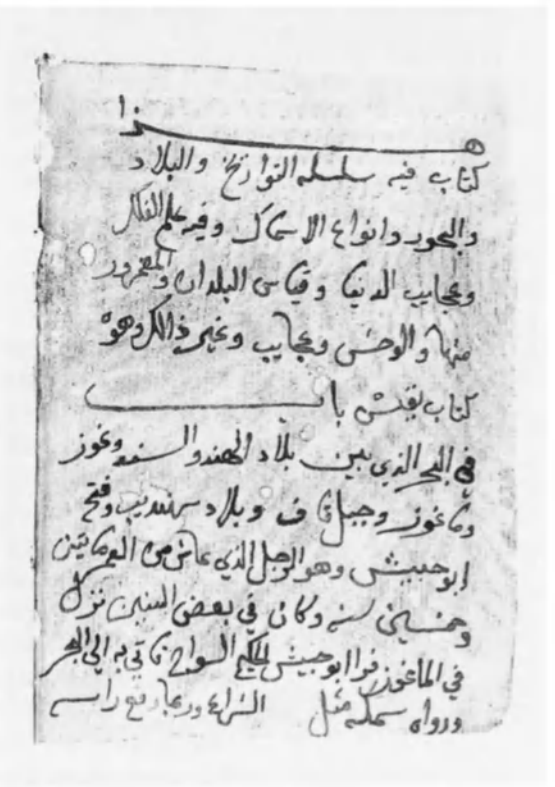 هذا
كتاب فيه سلسله التواريخ والبلاد
والبحور وانواع الاسماك وفيه علم الفلك
وعجايب الدنيا وقياس البلدان والمعمور
منها والوحش وعجايب وغير ذالك وهو
كتاب نفيس باب
في البحر الذي بين بلاد الهند والسند وغوز
وماغوز وجبل قاف وبلاد سرنديب وفتح
ابو حبيش وهو الرجل الذي عاش من العمر ماتين
وخمسين سنه وكان في بعض السنين نزل
في الماغوز فرا ابو حبيش الحكيم السواح فاتي به الي البحر
ورواه سمكه مثل الشراع وربما رفع راسه